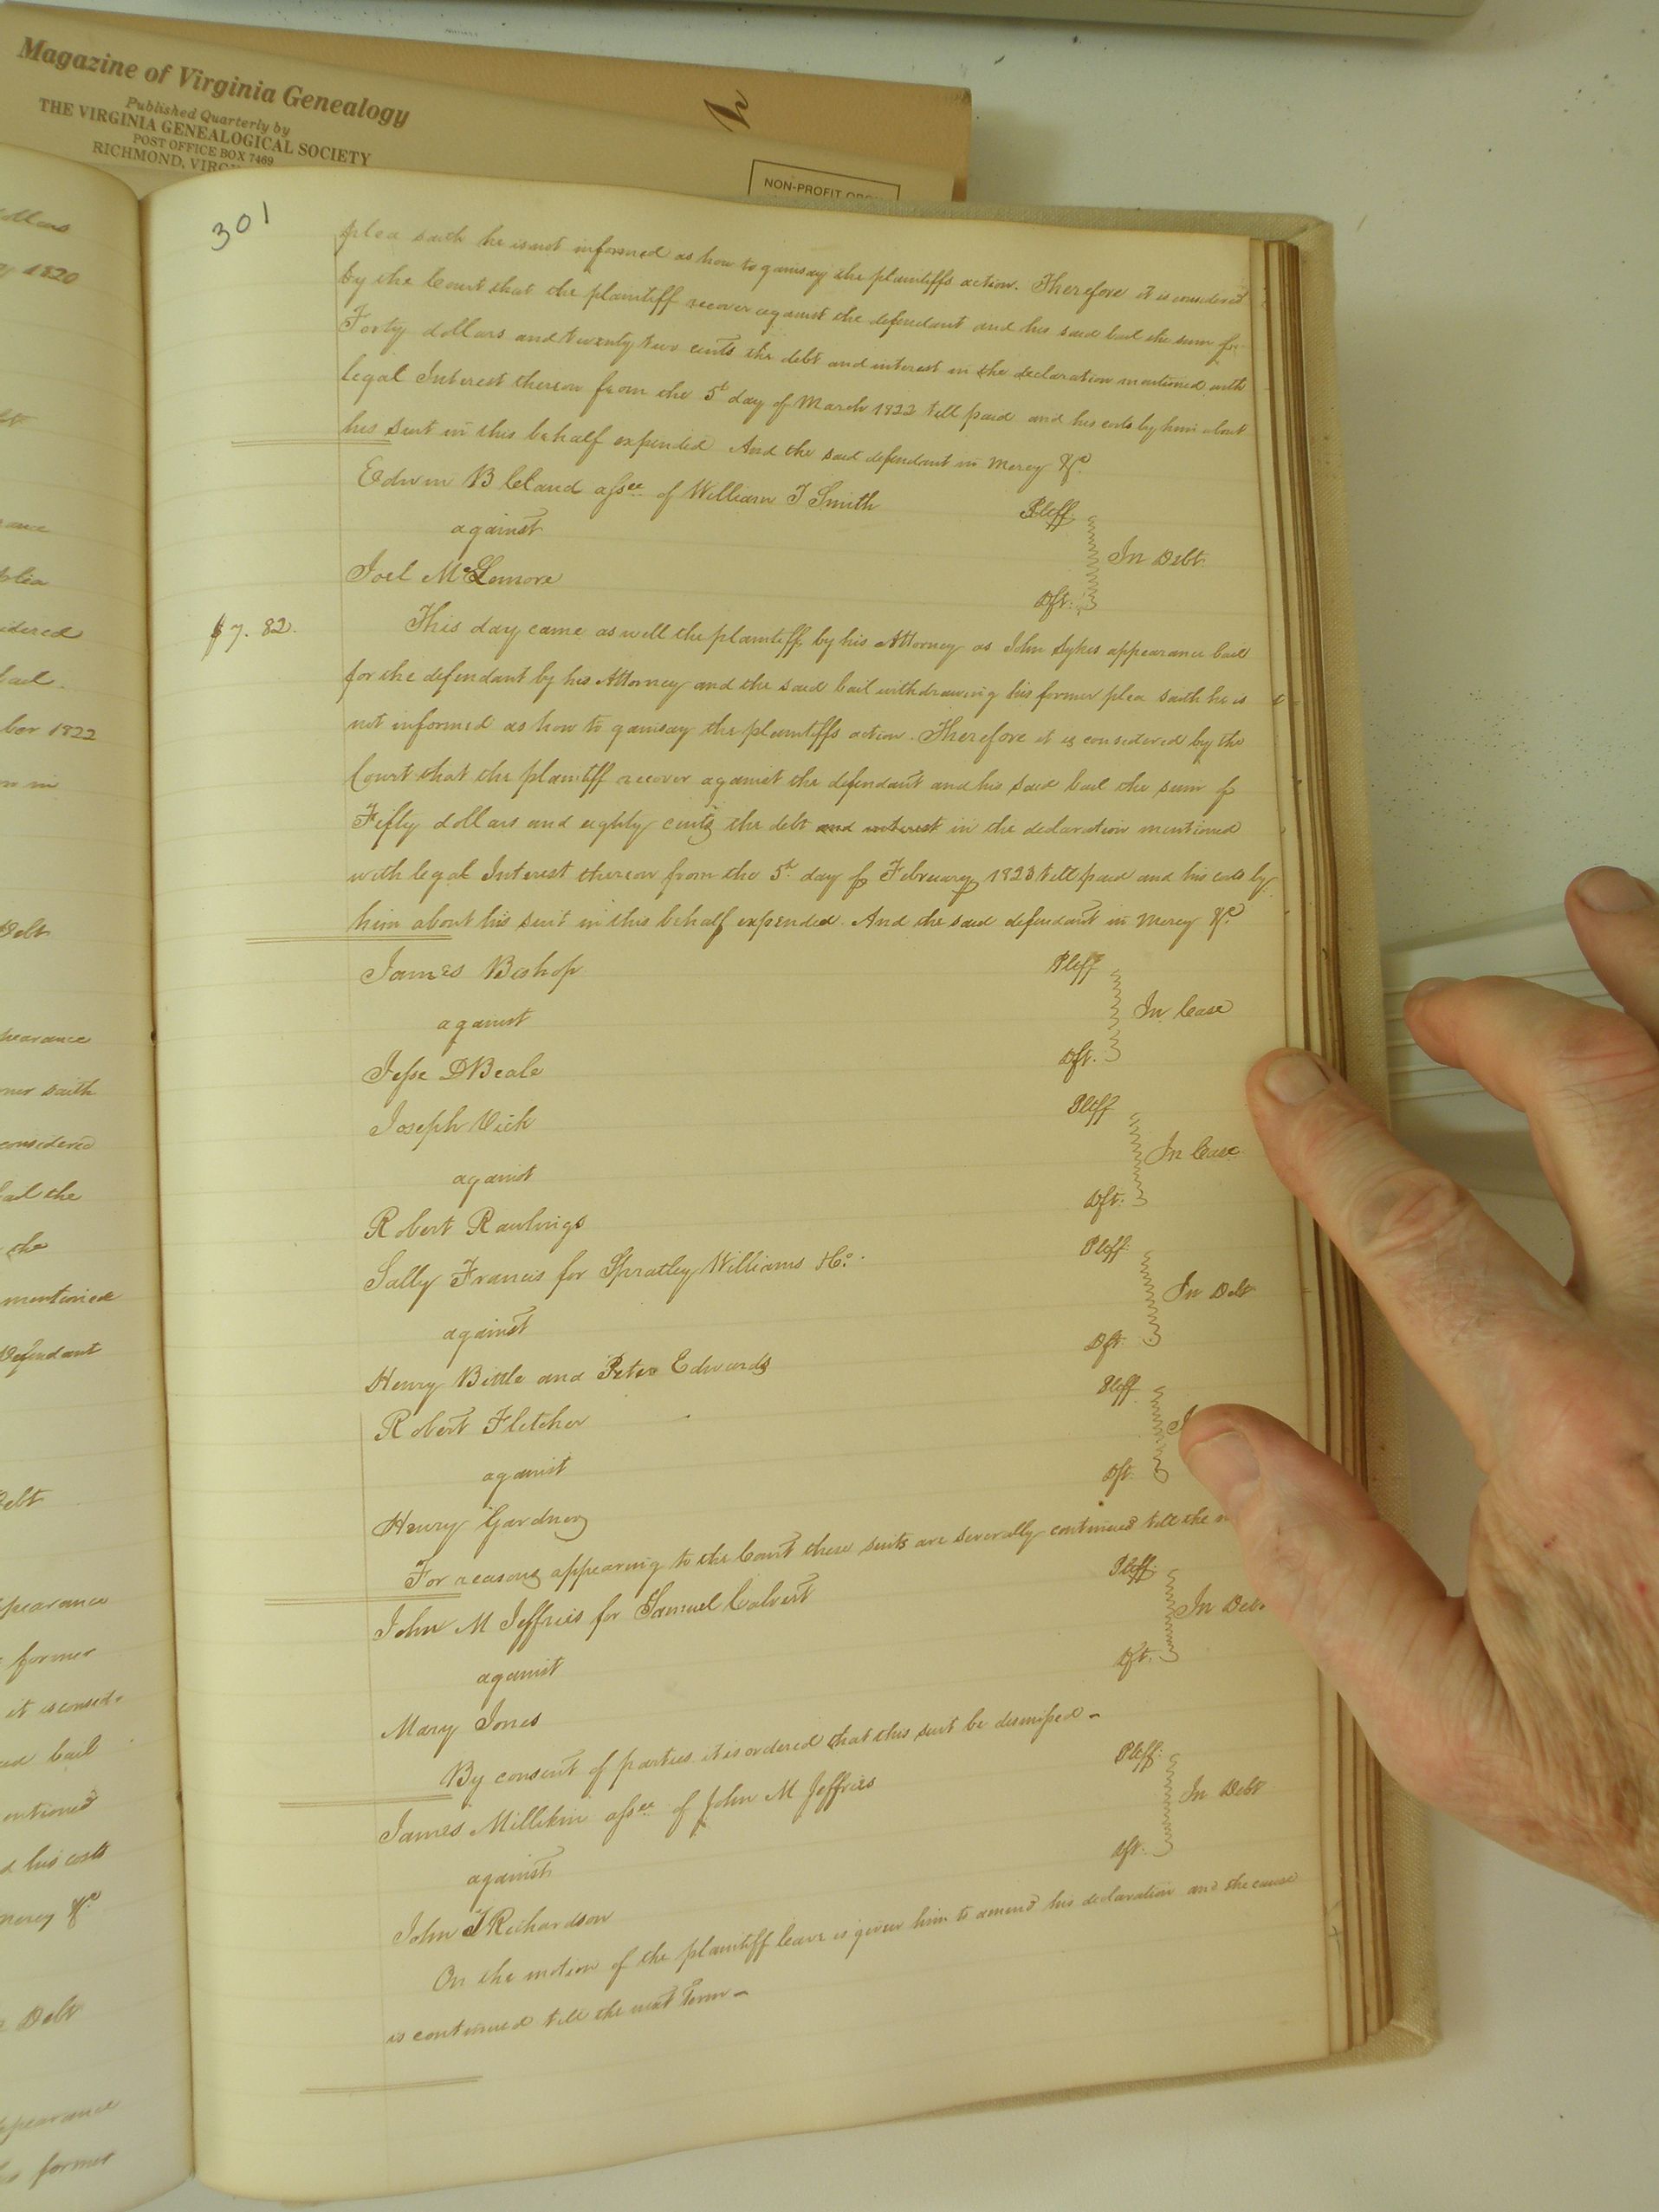 Magazine of Virginia Genealogy
Published Quarterly by
THE VIRGINIA GENEALOGICAL SOCIETY
POST OFFICE BOX 7469
RICHMOND,
NON-PROFIT
301
plea saith he is not informed as how to gainsay the plaintiffs action. Therefore it is considered
by the Court that the plaintiff recover against the defendant and his said bail the sum of
Forty dollars and twenty two cents the debt and interest in the declaration mentioned with
legal Interest thereon from the 5t day of March 1822 till paid and his costs by him about
his suit in this behalf expended And the said defendant in Mercy &c
Edwin B Cland assee of William T Smith Pltff
against In Debt
Joel McLemore Dft.
$7.82.
This day came as well the plaintiff by his Attorney as John Sykes appearance bail
for the defendant by his Attorney and the said bail withdrawing his former plea saith he is
not informed as how to gainsay the plaintiffs action. Therefore it is considered by the
Court that the plaintiff recover against the defendant and his said bail the sum of
Fifty dollars and eighty cents the debt and interest in the declaration mentioned
with legal Interest thereon from the 5t day of February 1823 till paid and his costs by
him about his suit in this behalf expended. And the said defendant in Mercy &c
James Bishop Pltff
against In Case
Jesse D Beale Dft.
Joseph Vick Pltff
against In Case
Robert Rawlings Dft.
Sally Francis for Spratley Williams &Co. Pltff
against In Debt
Henry Bittle and Peter Edwards Dft.
Robert Fletcher Pltff
against
Henry Gardner Dft.
For reasons appearing to the Court these suits are severally continued till the
John M Jeffries for Samuel Calvert Pltff
against In Debt
Mary Jones Dft.
By consent of parties it is ordered that this suit be dismissed -
James Millikin assee of John M Jeffries Pltff
against In Debt
John T Richardson Dft.
On the motion of the plaintiff leave is given him to amend his declaration and the cause
is continued till the next Term -
1820
plea
bail
1822
in
Debt
saith
considered
the
the
mentioned
Defendant
former
bail
his costs
mercy &c
Debt
former